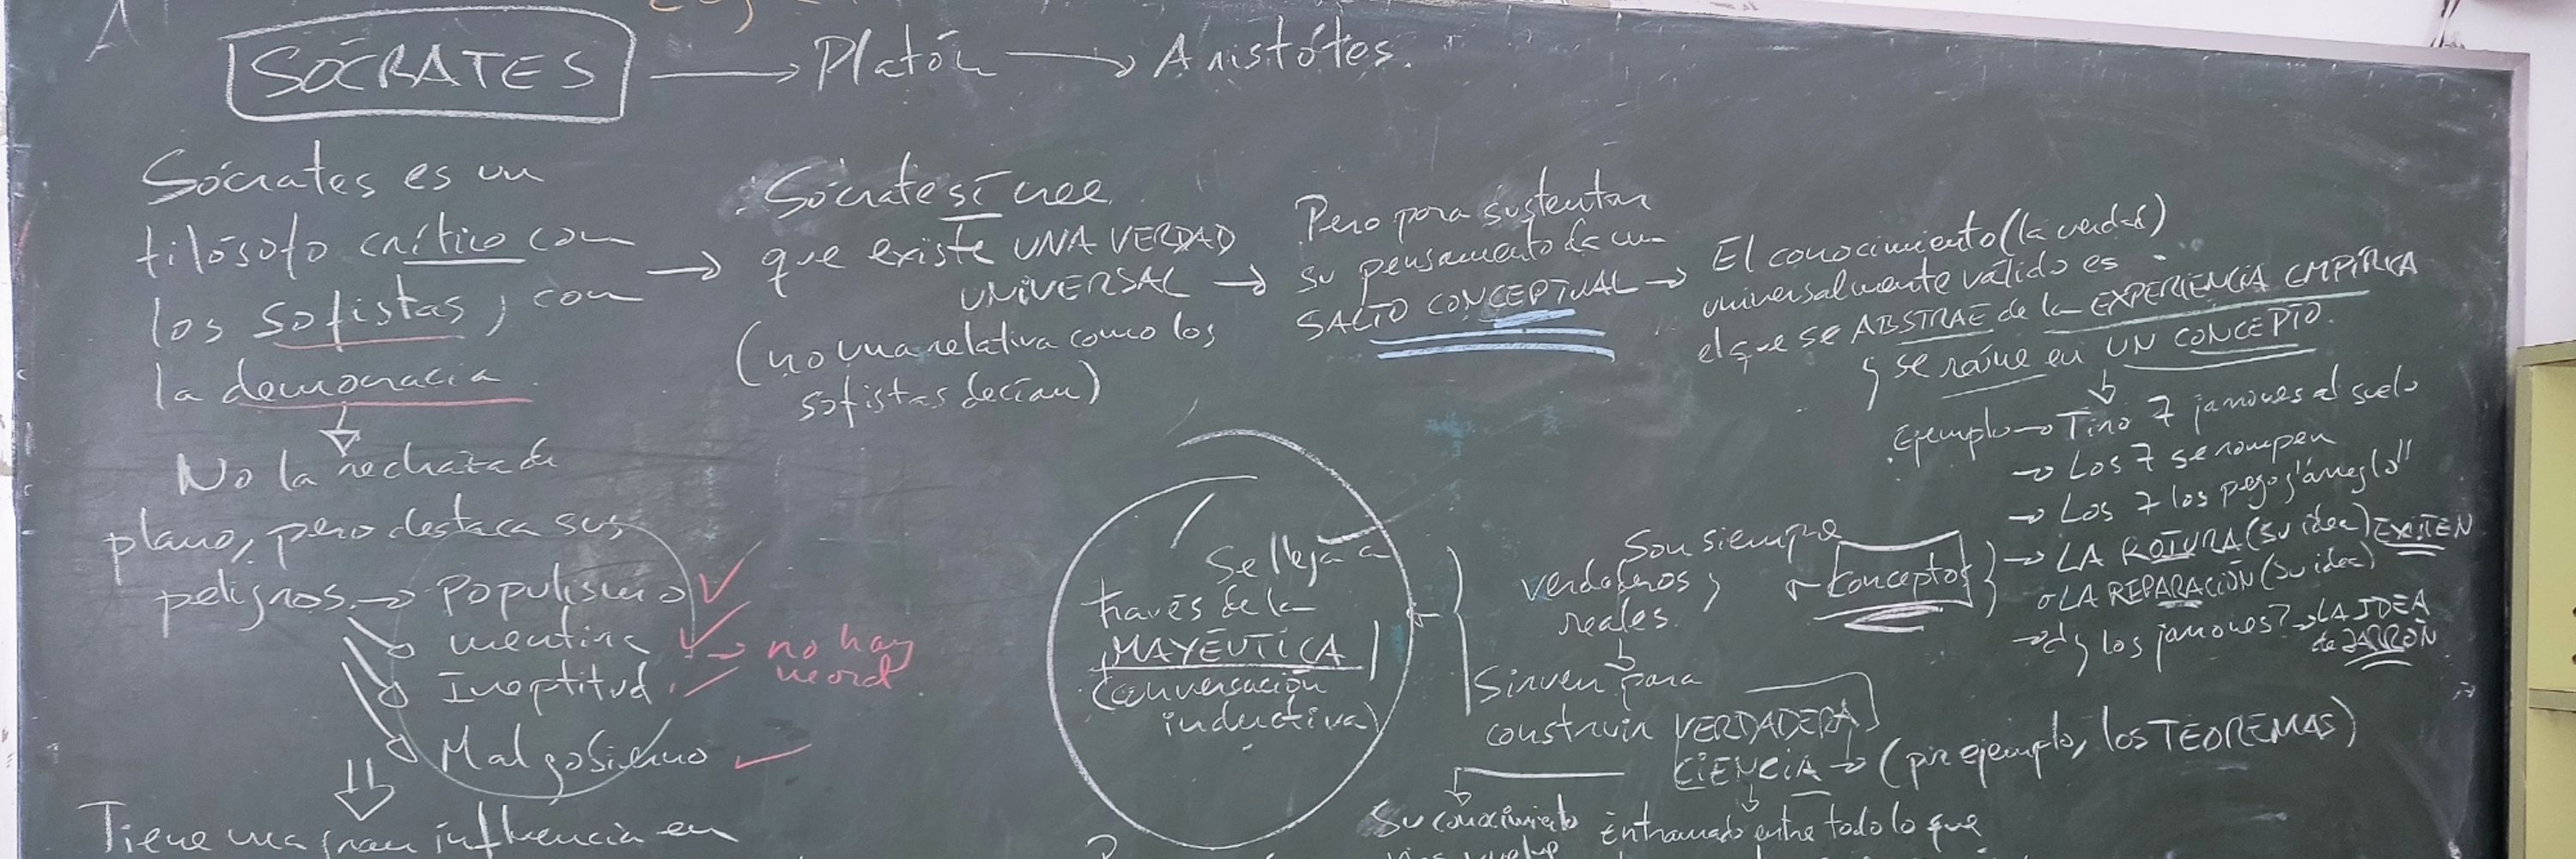 A
SÓCRATES → Platón → Aristótes.
Sócrates es un
filósofo crítico con
los sofistas, con
la democracia
No la rechaza de
plano, pero destaca sus
peligros. → Populismo
mentira → no hay
Ineptitud
Mal gobierno
Tiene una gran influencia en
Sócrates sí cree
que existe UNA VERDAD
UNIVERSAL →
(no una relativa como los
sofistas decían)
Pero para sustentar
su pensamiento da un
SALTO CONCEPTUAL →
El conocimiento (la verdad)
universalmente válido es
el que se ABSTRAE de la EXPERIENCIA EMPÍRICA
y se reúne en UN CONCEPTO.
Ejemplo → Tiro 7 jarrones al suelo
→ Los 7 se rompen
→ Los 7 los pego y "arreglo"
→ LA ROTURA (su idea) EXITEN
o LA REPARACIÓN (su idea)
→ ¿y los jarrones? → LA IDEA
de JARRÓN
Conceptos
Son siempre
verdaderos y
reales
Sirven para
construir VERDADERA
CIENCIA → (por ejemplo, los TEOREMAS)
Su conocimiento
Entramado entre todo lo que
Se lleja a
través de la
MAYÉUTICA
(conversación
inductiva)